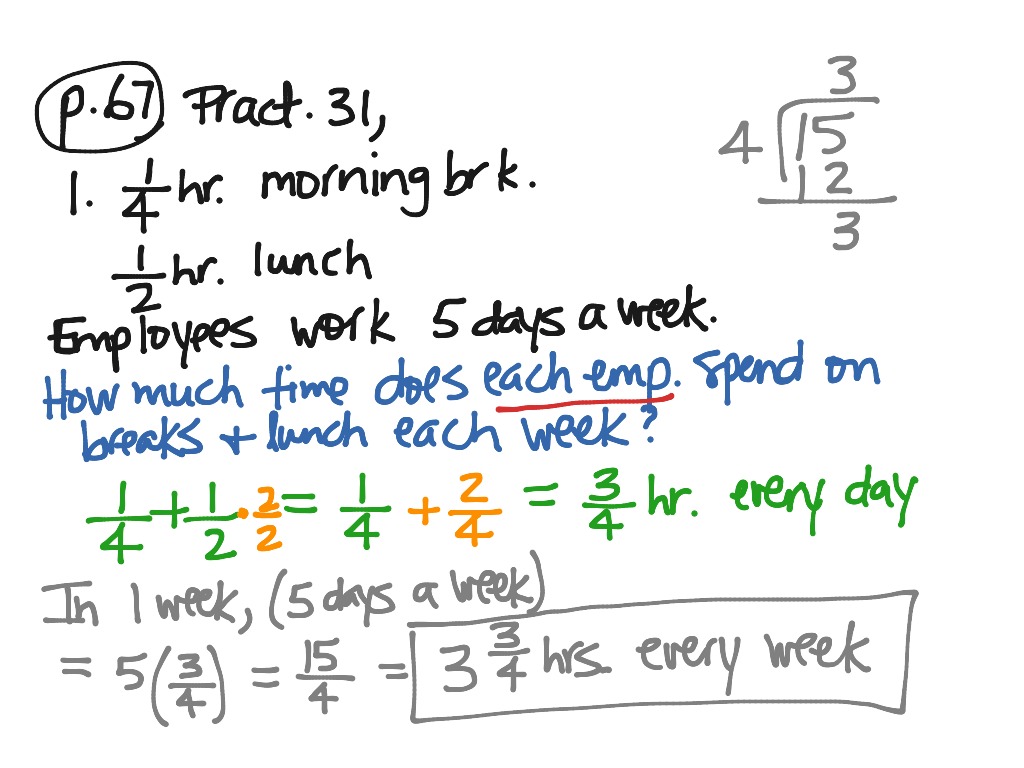 p.67 Pract. 31,
1. 1/4 hr. morning brk.
1/2 hr. lunch
Employees work 5 days a week.
How much time does each emp. spend on
breaks + lunch each week?
1/4 + 1/2 · 2/2 = 1/4 + 2/4 = 3/4 hr. every day
In 1 week, (5 days a week)
= 5(3/4) = 15/4 = 3 3/4 hrs. every week
3
4 15
12
3